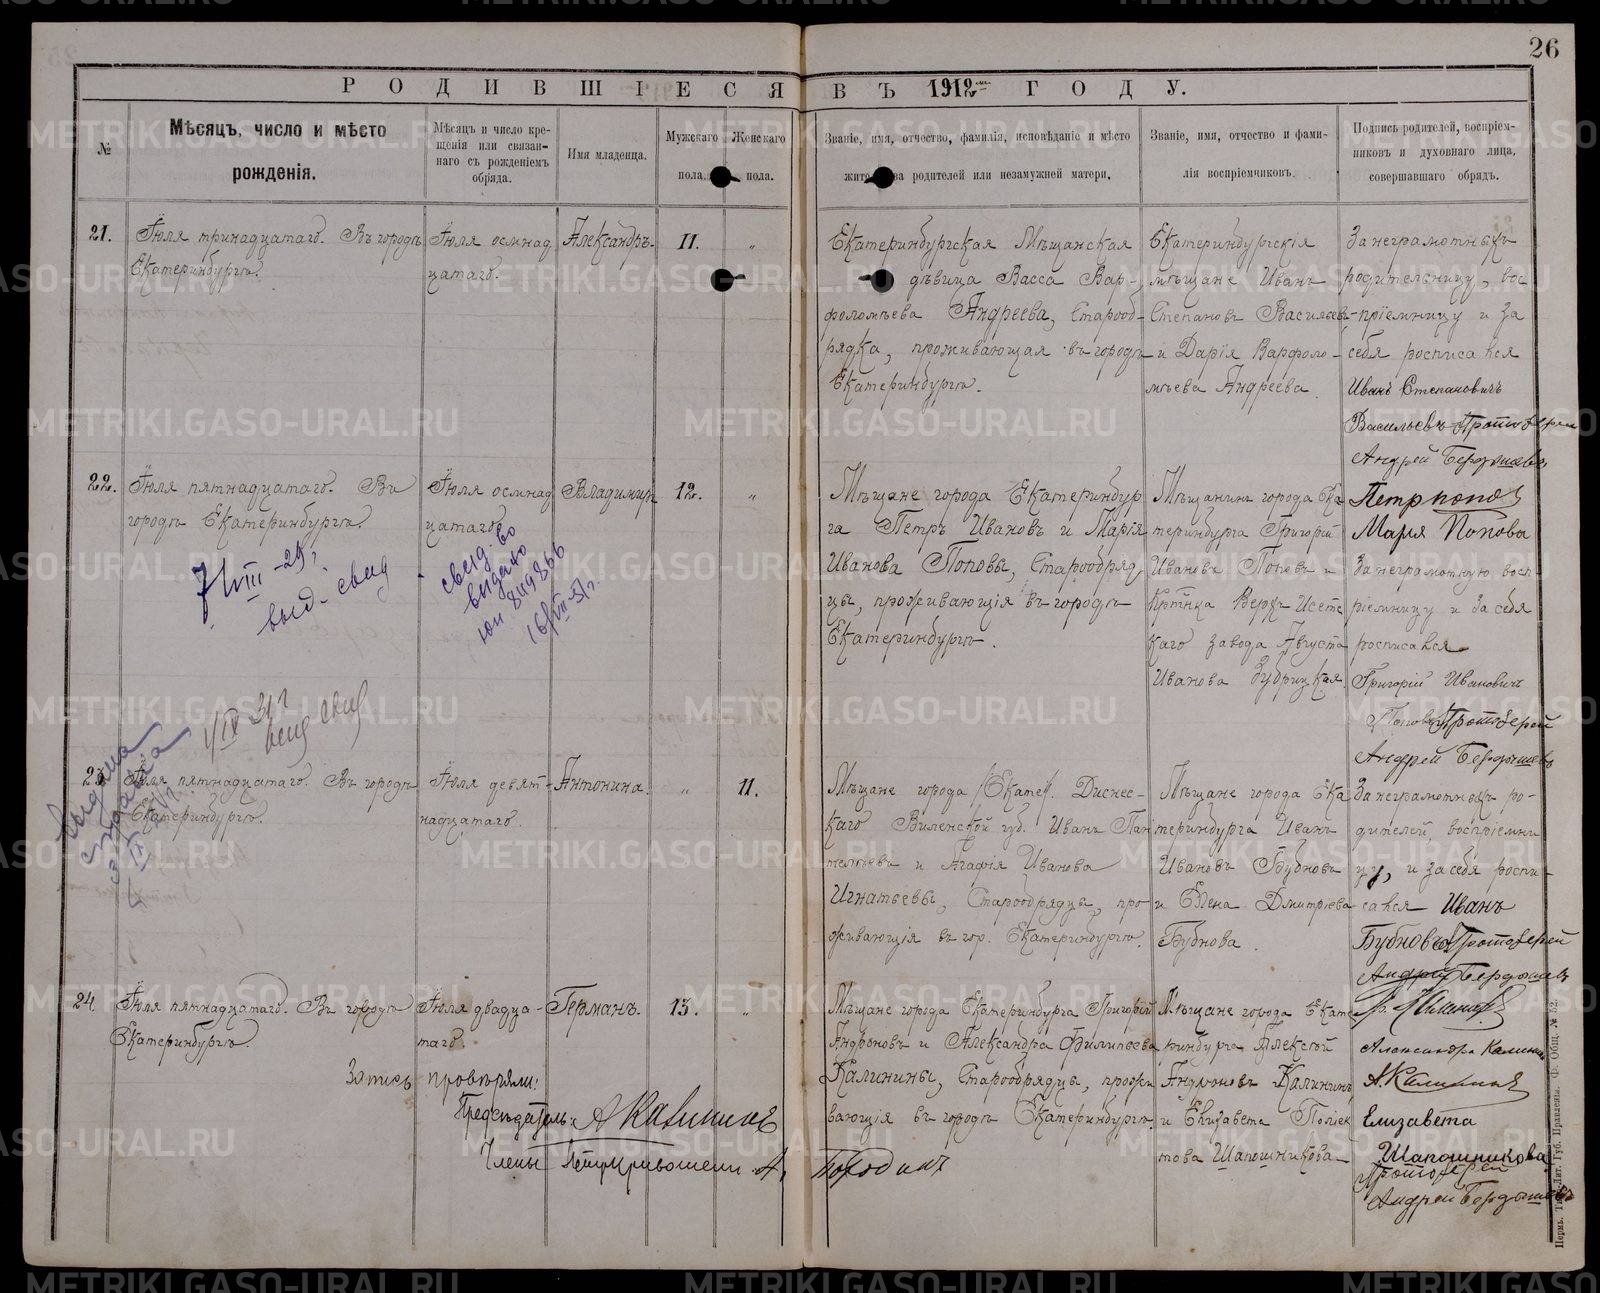 26
РОДИВШІЕСЯ ВЪ 1912 ГОДУ.
№
Мѣсяцъ, число и мѣсто
рожденія.
Мѣсяцъ и число кре-
щенія или связан-
наго съ рожденіемъ
обряда.
Имя младенца.
Мужскаго
пола.
Женскаго
пола.
Званіе, имя, отчество, фамилія, исповѣданіе и мѣсто
родителей или незамужней матери.
Званіе, имя, отчество и фами-
лія воспріемчиковъ.
Подпись родителей, воспріем-
никовъ и духовнаго лица,
совершавшаго обрядъ.
21.
Іюля тринадцатаго. Въ городѣ
Екатеринбургѣ.
Іюля осмнад
цатаго.
Александръ.
11.
"
Екатеринбургская Мѣщанская
дѣвица Васса Вар-
фоломѣева Андреева, Старооб-
рядка, проживающая въ городѣ
Екатеринбургѣ.
Екатеринбургскія
мѣщане Иванъ
Степановъ Васильевъ
и Дарія Варфоло-
мѣева Андреева.
За неграмотныхъ
родительницу, вос
пріемницу и за
себя росписался
Иванъ Степановичъ
Васильевъ Протоіерей
Андрей Бердышевъ
22.
Іюля пятнадцатаго. Въ
городѣ Екатеринбургѣ.
Іюля осмнад
цатаго
Владимиръ
12.
"
Мѣщане города Екатеринбур
га Петръ Ивановъ и Марія
Иванова Поповы, Старообряд
цы, проживающія въ городѣ
Екатеринбургѣ.
Мѣщанинъ города Ека
теринбурга Григорій
Ивановъ Поповъ и
Кртнка Верхъ Исетс
каго завода Августа
Иванова Зубрицкая.
Петр попов
Мария Попова
За неграмотную восп-
ріемницу и за себя
росписался
Григорій Ивановичъ
Поповъ Протоіерей
Андрей Бердышевъ
7/VIII-29г.
выд. свид
свид-во
выдано
юн 849866
16/VII-37г.
1/IX 31г
выд свид
выдана
справка
23.
Іюля пятнадцатаго. Въ городѣ
Екатеринбургѣ.
Іюля девят-
надцатаго.
Антонина.
"
11.
Мѣщане города /Екате/. Диснес-
каго Виленской губ. Иванъ Пан
телѣевъ и Агафія Иванова
Игнатьевы, Старообрядцы, про
живающія въ гор. Екатеринбургѣ.
Мѣщане города Ека
теринбурга Иванъ
Ивановъ Бубновъ
и Елена Дмитріева
Бубнова.
За неграмотныхъ ро-
дителей, воспріемни
цу, и за себя роспи-
сался Иванъ
Бубновъ Протоіерей
Андрей Бердышевъ
24.
Іюля пятнадцатаго. Въ городѣ
Екатеринбургѣ.
Іюля двадца-
таго.
Германъ.
13.
"
Мѣщане города Екатеринбурга Григорій
Андроновъ и Александра Филипьева
Калинины, Старообрядцы, прожи
вающія въ городѣ Екатеринбургѣ.
Мѣщане города Екате
ринбурга Алексѣй
Андроновъ Калининъ
и Елизавета Поліек
това Шапошникова
Александра Калинина
А. Калинин
Елизавета
Шапошникова
Протоіерей
Андрей Бердышевъ
Запись провѣряли:
Предсѣдатель: А Калининъ
Члены
Бородинъ
Пермь. Тип.-Лит. Губ. Правленія. Ф. Общ. № 52.
METRIKI.GASO-URAL.RU